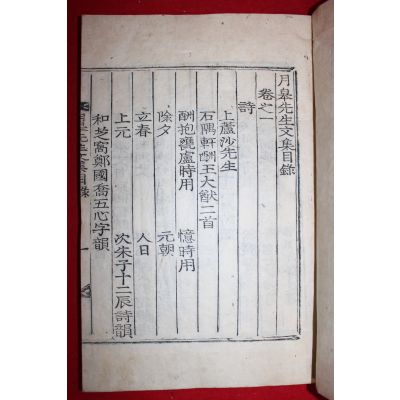 月皐先生文集目錄
卷之一
詩
上蘆沙先生
石隅軒酬王大猷二首
酬抱甕處時用 憶時用
除夕 元朝
立春 人日
上元 次朱子十二辰詩韻
和芝窩鄭國喬五心字韻
月皐先生文集目錄 一